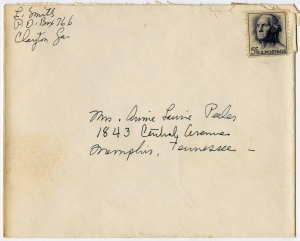 L. Smith
P.O. Box 766
Clayton Ga.
5¢ U.S. POSTAGE
Mrs. Annie Laurie Peeler
1843 Central Avenue
Memphis, Tennessee